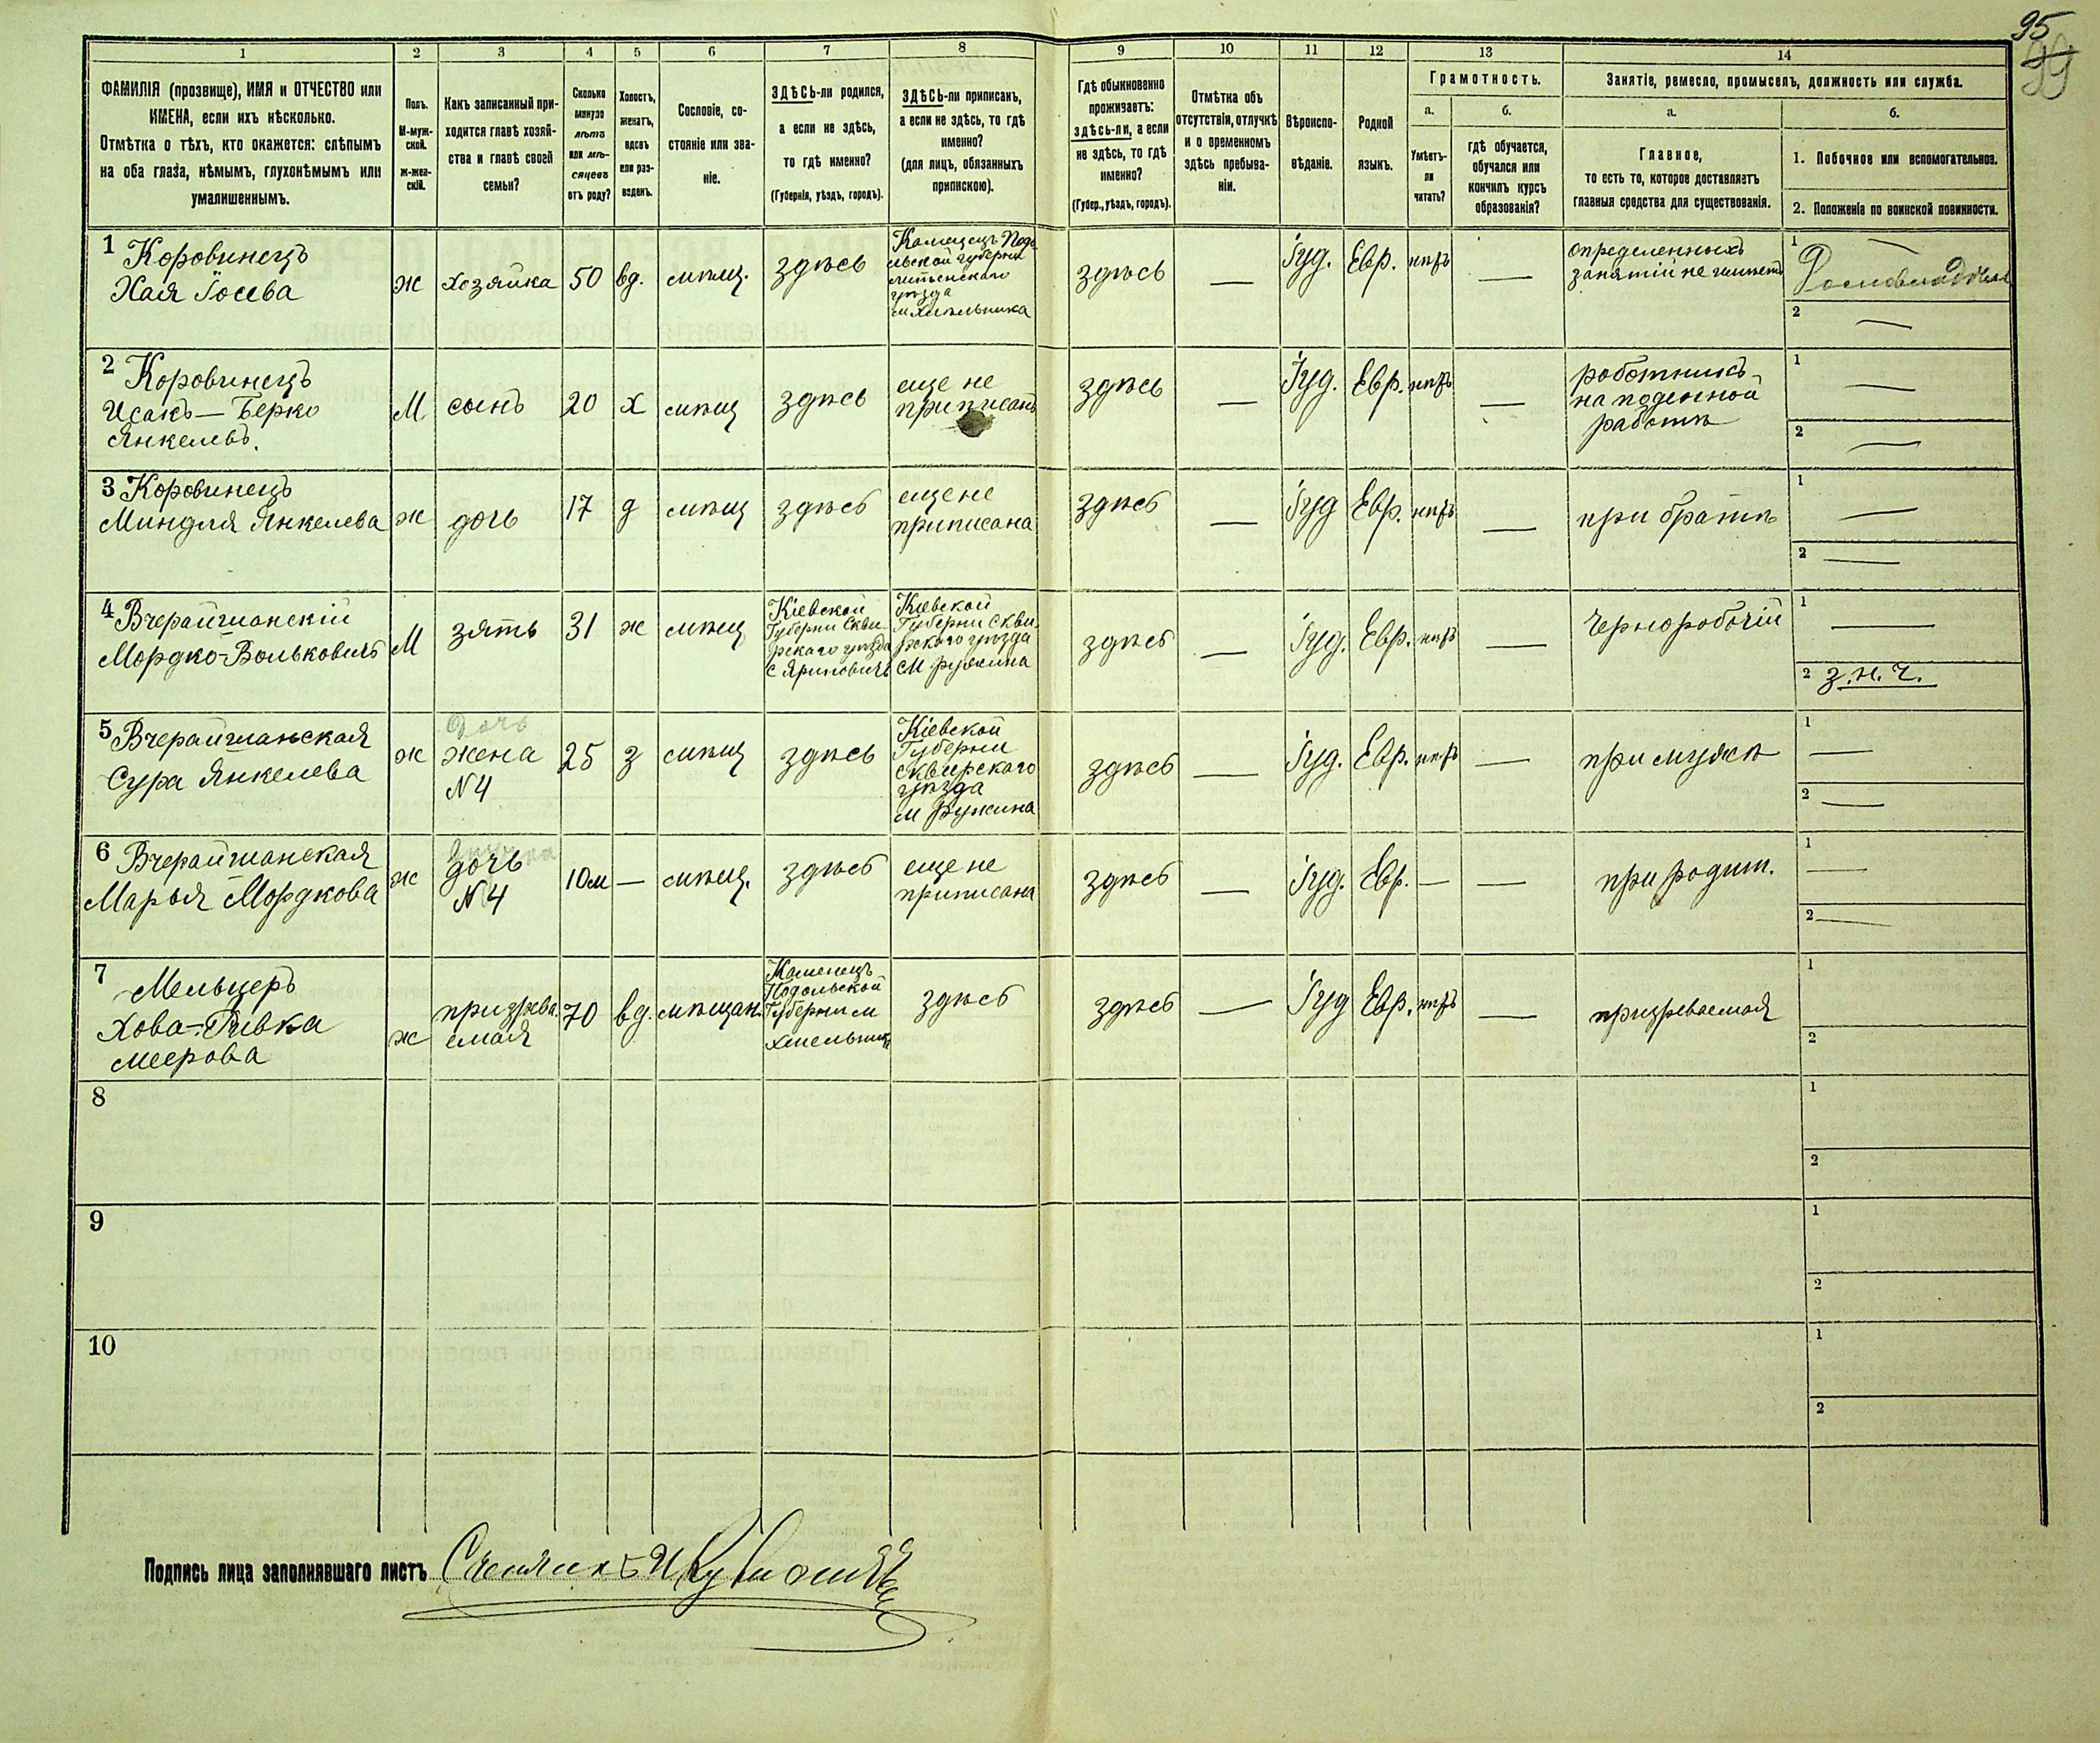 95
99
1 2 3 4 5 6 7 8 9 10 11 12 13 14
ФАМИЛІЯ (прозвище), ИМЯ и ОТЧЕСТВО или
ИМЕНА, если ихъ нѣсколько.
Отмѣтка о тѣхъ, кто окажется: слѣпымъ
на оба глаза, нѣмымъ, глухонѣмымъ или
умалишеннымъ.
Полъ.
М-муж-
ской.
Ж-жен-
скій.
Какъ записанный при-
ходится главѣ хозяй-
ства и главѣ своей
семьи?
Сколько
минуло
лѣтъ
или мѣ-
сяцевъ
отъ роду?
Холостъ,
женатъ,
вдовъ
или раз-
веденъ.
Сословіе, со-
стояніе или зва-
ніе.
ЗДѢСЬ-ли родился,
а если не здѣсь,
то гдѣ именно?
(Губернія, уѣздъ, городъ).
ЗДѢСЬ-ли приписанъ,
а если не здѣсь, то гдѣ
именно?
(для лицъ, обязанныхъ
припискою).
Гдѣ обыкновенно
проживаетъ:
здѣсь-ли, а если
не здѣсь, то гдѣ
именно?
(Губер., уѣздъ, городъ).
Отмѣтка объ
отсутствіи, отлучкѣ
и о временномъ
здѣсь пребыва-
ніи.
Вѣроиспо-
вѣданіе.
Родной
языкъ.
Грамотность.
а.
Умѣетъ-
ли
читать?
б.
гдѣ обучается,
обучался или
кончилъ курсъ
образованія?
Занятіе, ремесло, промыселъ, должность или служба.
а.
Главное,
то есть то, которое доставляетъ
главныя средства для существованія.
б.
1. Побочное или вспомогательное.
2. Положеніе по воинской повинности.
1 Коровинецъ
Хая Іосева
ж
хозяйка
50
вд.
мѣщ.
здѣсь
Каменецъ Подо
льской губерни
литенскаго
уѣзда
м Хмельника
здѣсь
—
Іуд.
Евр.
нѣтъ
—
определенныхъ
занятій не имѣетъ
1 —
2 —
2 Коровинецъ
Исакъ — Берко
Янкелевъ.
М
сынъ
20
х
мѣщ
здѣсь
еще не
приписанъ
здѣсь
—
Іуд.
Евр.
нѣтъ
—
роботникъ
на поденной
работѣ
1 —
2 —
3 Коровинецъ
Миндля Янкелева
ж
дочь
17
д
мѣщ
здѣсь
еще не
приписана
здѣсь
—
Іуд
Евр.
нѣтъ
—
при братѣ
1 —
2 —
4 Вчерайшанскій
Мордко-Вольковичъ
М
зять
31
ж
мѣщ
Кіевской
Губерни Скви-
рскаго уѣзда
с Яриповичъ
Кіевской
Губерни Скви
рскаго уѣзда
м ружина
здѣсь
—
Іуд.
Евр.
нѣтъ
—
Чернорабочій
1 —
2 з.н.ч.
5 Вчерайшанская
Сура Янкелева
ж
Дочь
жена
N 4
25
з
мѣщ
здѣсь
Кіевской
Губерни
сквирскаго
уѣзда
м Ружина
здѣсь
—
Іуд.
Евр.
нѣтъ
—
при мужѣ
1 —
2 —
6 Вчерайшанская
Марья Мордкова
ж
дочь
N 4
10 м
—
мѣщ.
здѣсь
еще не
приписана
здѣсь
—
Іуд.
Евр.
—
—
при родит.
1 —
2 —
7 Мельцеръ
Хова-Ривка
меерова
ж
призрева
емая
70
вд.
мѣщан.
Каменецъ
Подольской
Губерни м
Хмельникъ
здѣсь
здѣсь
—
Іуд
Евр.
нѣтъ
—
призреваемая
1
2
8
1
2
9
1
2
10
1
2
Подпись лица заполнявшаго листъ